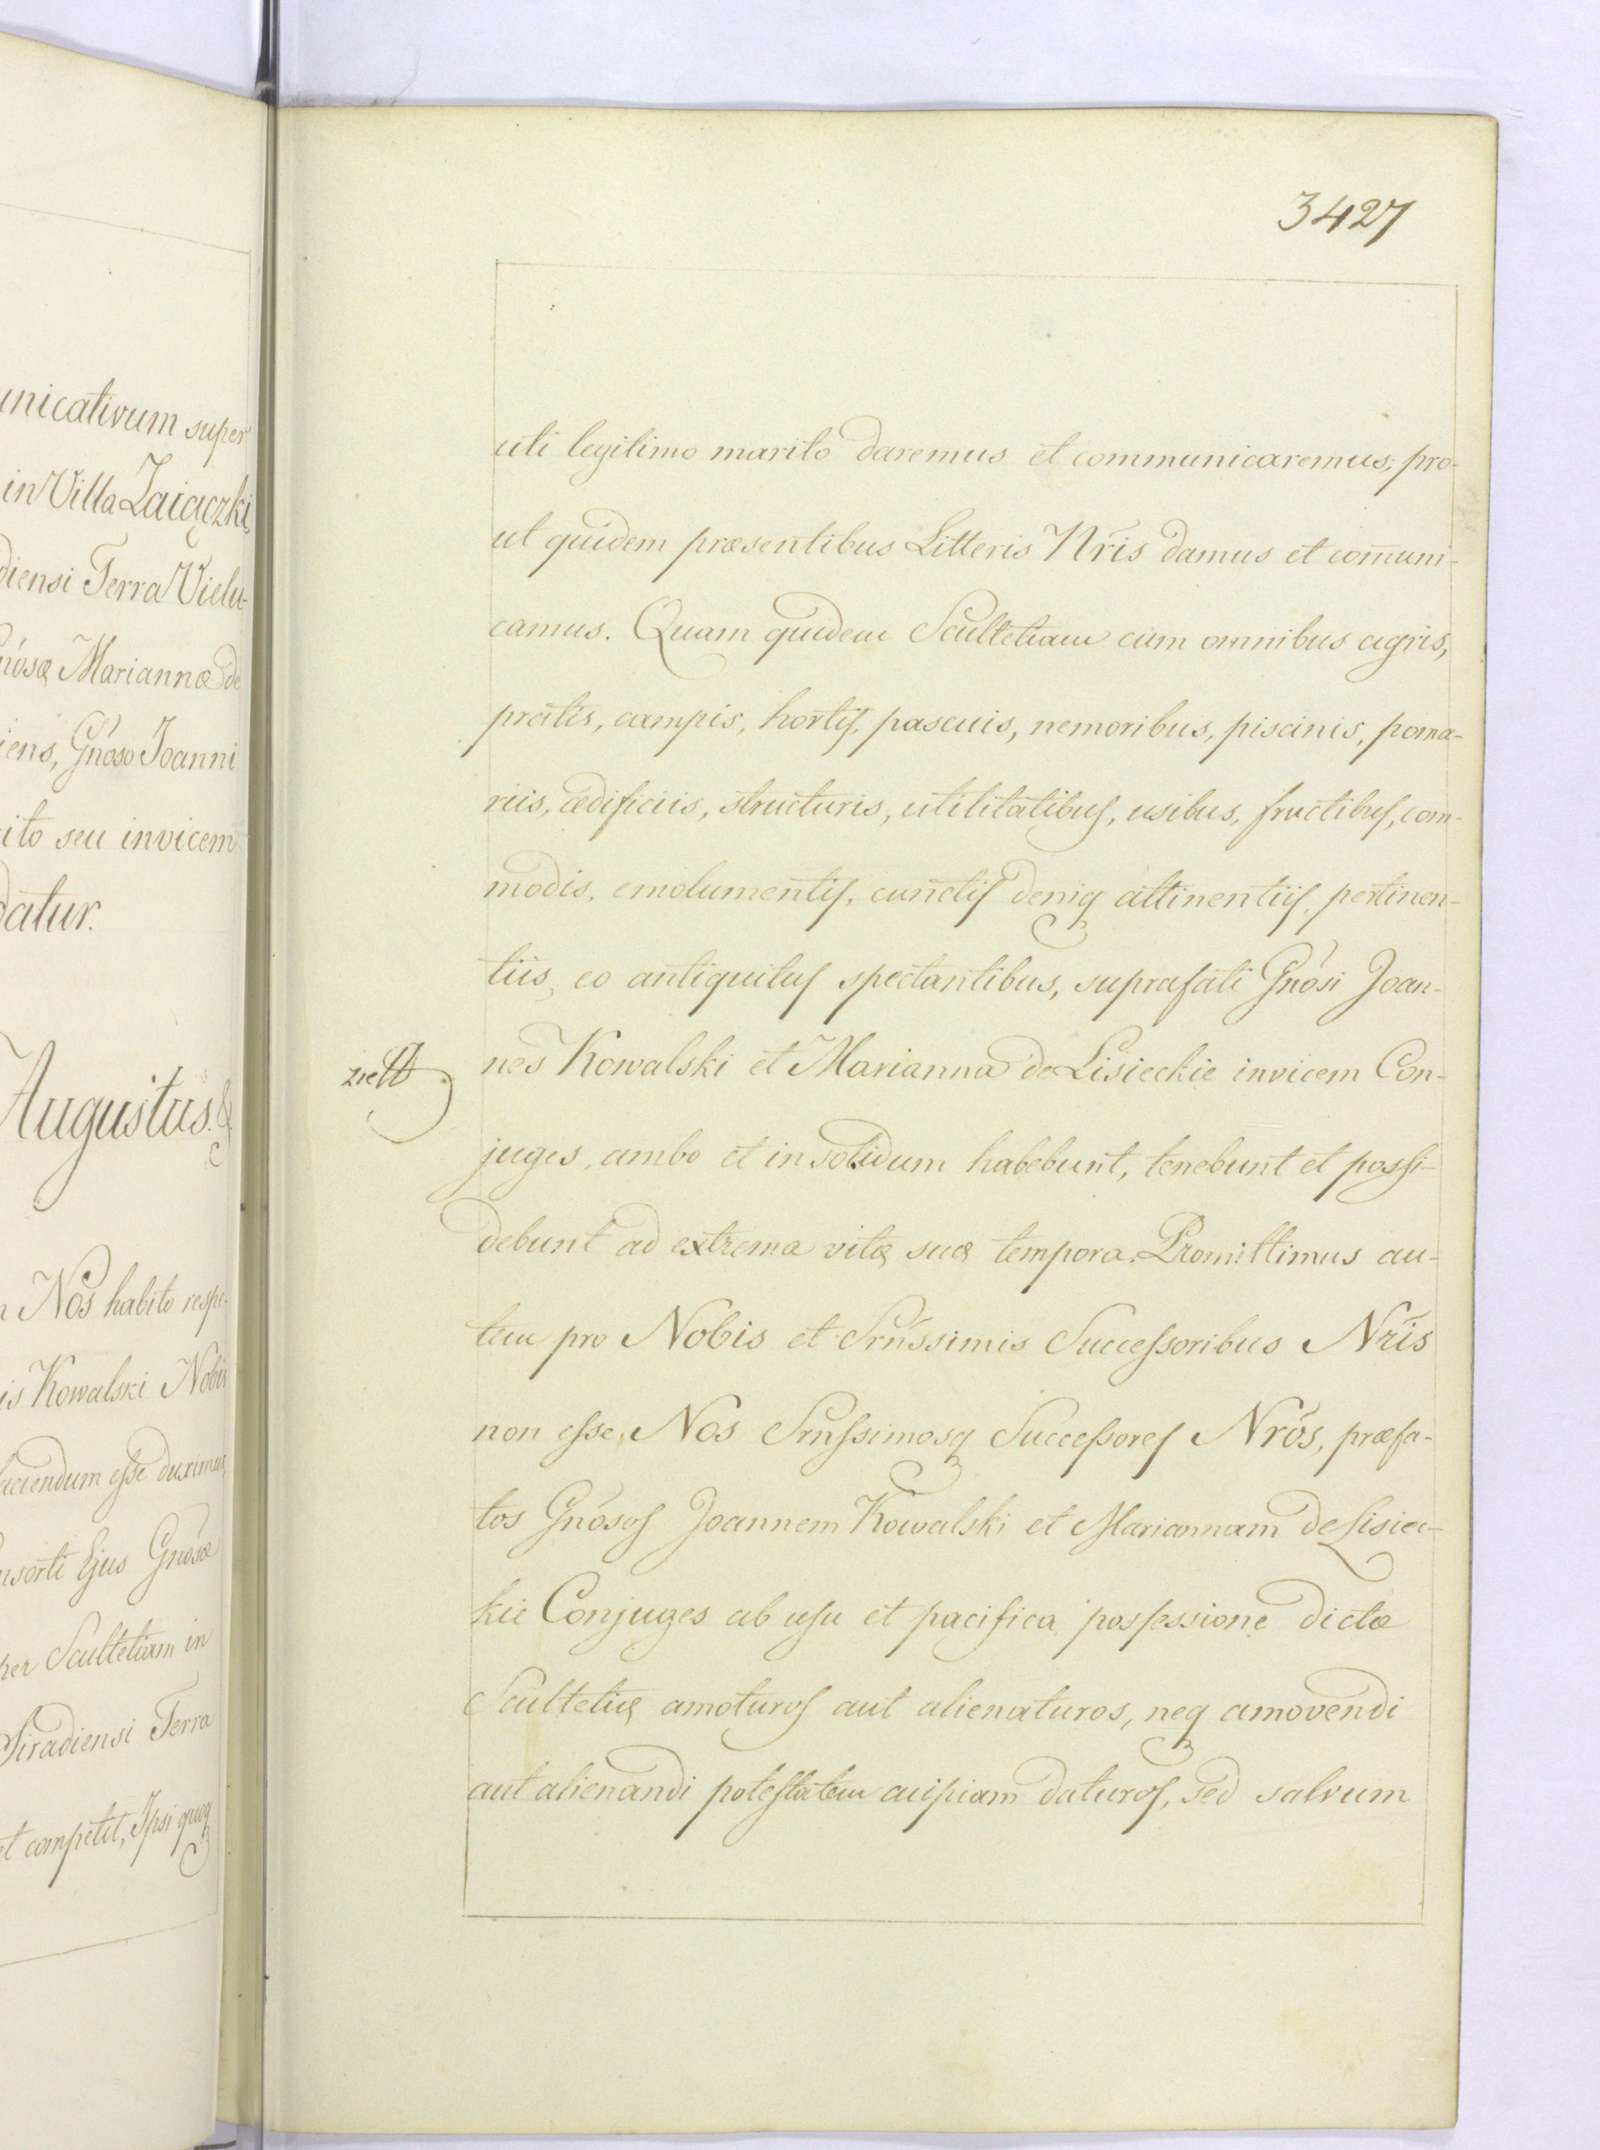 unicativum super
in Villa Zaiączki
diensi Terra Vielu-
nósæ Mariannæ de
iens, Gnóso Joanni
ito seu invicem
datur.
Augustus. &
Nos habito respe-
is Kowalski Nobis
faciendum esse duximus
nsorti Ejus Gnósæ
per Scultetiam in
Siradiensi Terra
et competit, Ipsi quoq
3427
uti legitimo marito daremus et communicaremus; pro-
ut quidem præsentibus Litteris Nris damus et com̄uni-
camus. Quam quidem Scultetiam cum omnibus agris,
pratis, campis, hortis, pascuis, nemoribus, piscinis, poma-
riis, ædificiis, structuris, utilitatibus, usibus, fructibus, com-
modis, emolumentis, cunctis deniq attinentiis, pertinen-
tiis, eo antiquitus spectantibus, suprafati Gnósi Joan-
nes Kowalski et Marianna de Lisieckie invicem Con-
juges, ambo et in solidum habebunt, tenebunt et possi-
debunt ad extrema vitæ suæ tempora. Promittimus au-
tem pro Nobis et Srnssimis Successoribus Nris
non esse, Nos Srnssimosq Successores Nrós, præfa-
tos Gnósos Joannem Kowalski et Mariannam de Lisiec-
kie Conjuges ab usu et pacifica possessione dictæ
Scultetiæ amoturos aut alienaturos, neq amovendi
aut alienandi potestatem cuipiam daturos, sed salvum